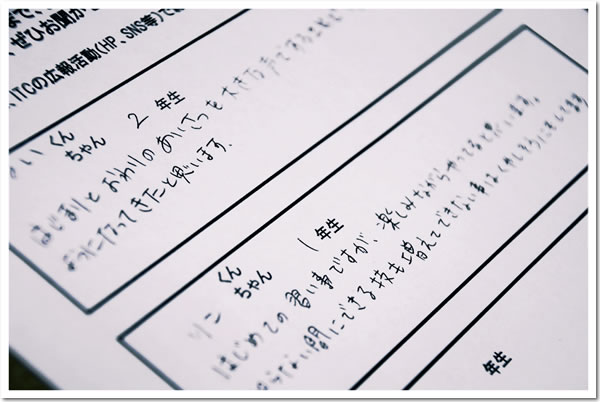 ぜひお聞かせ
ITCの広報活動(HP、SNS等)で
くん
ちゃん
2 年生
はじまりと おわりの あいさつを 大きな声で
ようになってきたと思います。
リン
くん
ちゃん
1 年生
はじめての 習い事ですが、楽しみながらやってると思います。
間にできる技も増えて できない事は くやしそうにしてます
年生